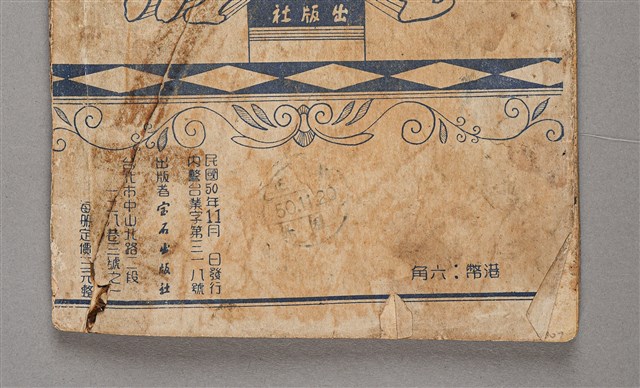 出版社
民國50年11月 日發行
內警台業字第三一八號
出版者宝石出版社
台北市中山北路 段
八巷三號之一
每冊定價 元整
50.11.20
港幣：六角